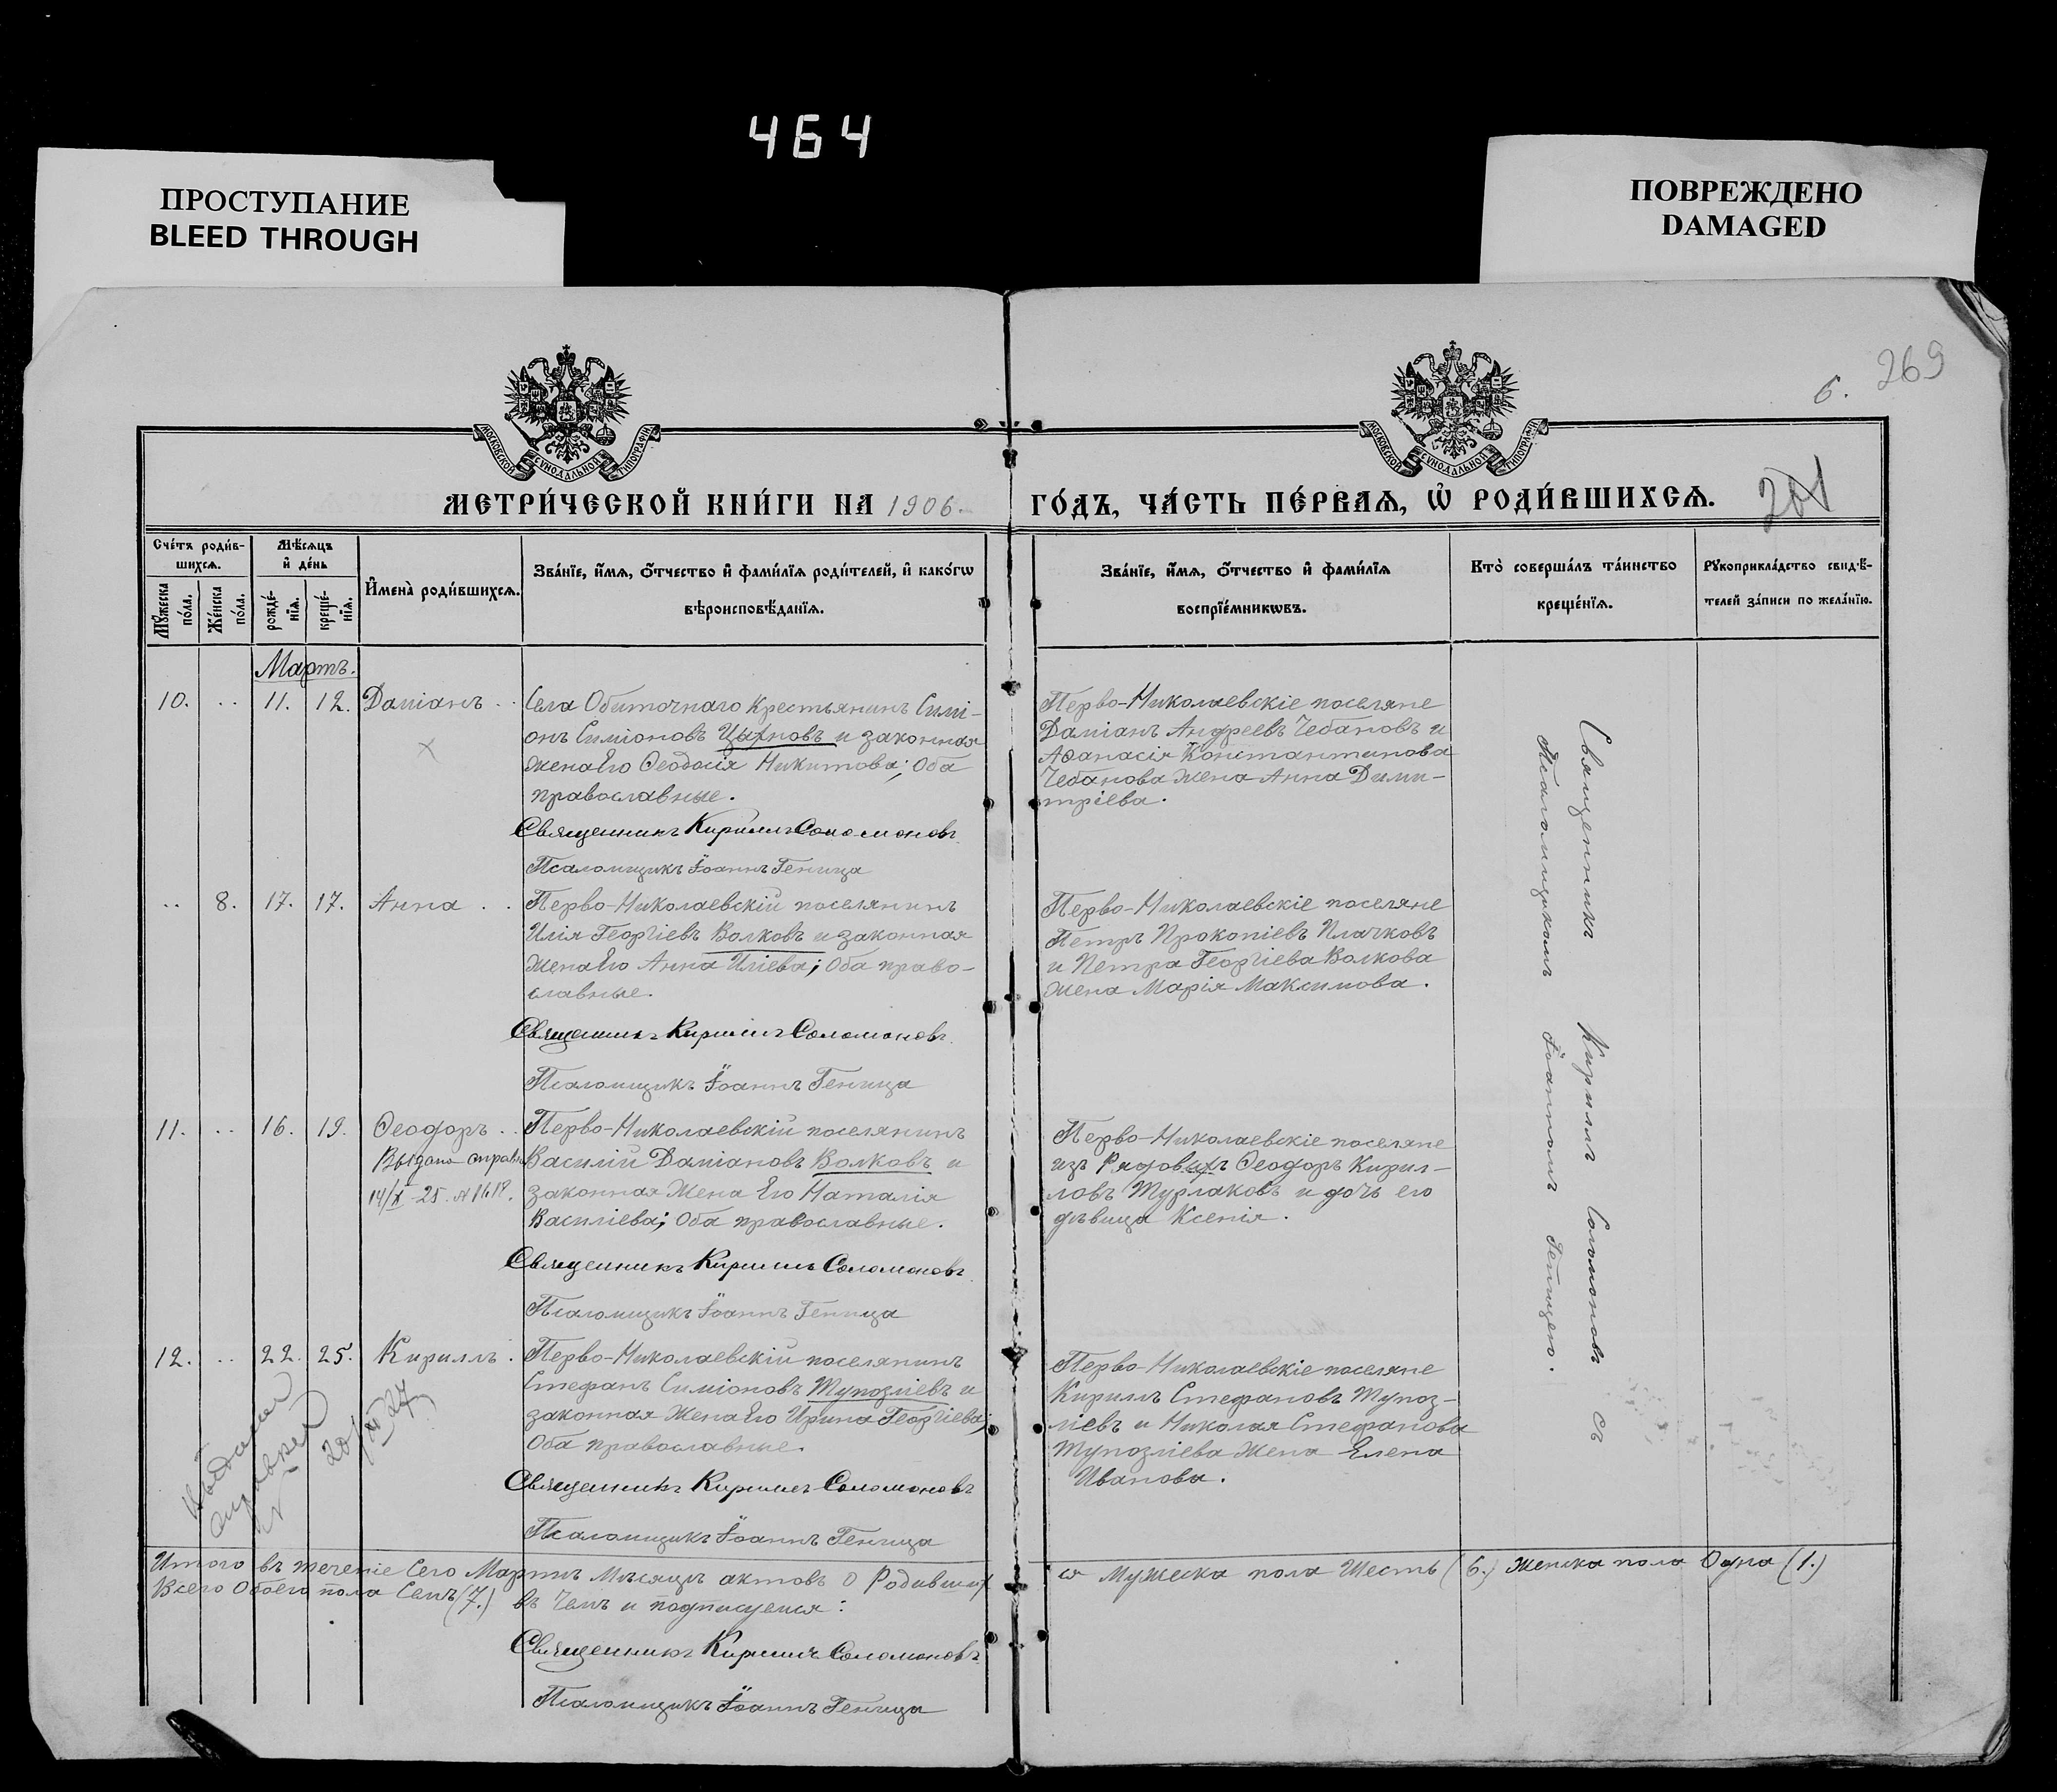 464
ПРОСТУПАНИЕ
BLEED THROUGH
ПОВРЕЖДЕНО
DAMAGED
269
6.
МОСКОВСКОЙ СѴНОДАЛЬНОЙ ТИПОГРАФІИ
МОСКОВСКОЙ СѴНОДАЛЬНОЙ ТИПОГРАФІИ
МЕТРИ́ЧЕСКОЙ КНИ́ГИ НА 1906.
ГО́ДЪ, ЧА́СТЬ ПЕ́РВАѦ, Ѡ҆ РОДИ́ВШИХСѦ.
201
Сче́тъ роди́в-
шихсѧ.
Мѣ́сѧцъ
и҆ де́нь
Мꙋ́жеска
по́ла.
Же́нска
по́ла.
рожде́-
нїѧ.
креще́-
нїѧ.
И҆мена̀ роди́вшихсѧ.
Зва́нїе, и҆́мѧ, ѻ҆́тчество и҆ фами́лїѧ роди́телей, и҆ како́гѡ
вѣроисповѣ́данїѧ.
Зва́нїе, и҆́мѧ, ѻ҆́тчество и҆ фами́лїѧ
воспрїе́мникѡвъ.
Кто̀ соверша́лъ та́инство
креще́нїѧ.
Рꙋкоприкла́дство свидѣ́-
телей за́писи по жела́нїю.
Мартъ.
10. .. 11. 12. Даміанъ ..
Села Обиточнаго крестьянинъ Симі-
онъ Симіоновъ Цыхновъ и законная
жена Его Ѳеодосія Никитова; Оба
православные.
Священникъ Кириллъ Соломоновъ
Псаломщикъ Іоаннъ Геница
Перво-Николаевскіе поселяне
Даміанъ Андреевъ Чебановъ и
Аѳанасія Константинова
Чебанова жена Анна Дими-
тріева.
.. 8. 17. 17. Анна ..
Перво-Николаевскій поселянинъ
Илія Георгіевъ Волковъ и законная
жена Его Анна Иліева; Оба право-
славные.
Священникъ Кириллъ Соломоновъ
Псаломщикъ Іоаннъ Геница
Перво-Николаевскіе поселяне
Петръ Прокопіевъ Плачковъ
и Петра Георгіева Волкова
жена Марія Максимова.
11. .. 16. 19. Ѳеодоръ ..
Выдана справка
14/X-25. №1618.
Перво-Николаевскій поселянинъ
Василій Даміановъ Волковъ и
законная Жена Его Наталія
Василіева; Оба православные.
Священникъ Кириллъ Соломоновъ
Псаломщикъ Іоаннъ Геница
Перво-Николаевскіе поселяне
изъ Рядовыхъ Ѳеодоръ Кирил-
ловъ Турлаковъ и дочь его
дѣвица Ксенія.
12. .. 22. 25. Кириллъ.
справка
Перво-Николаевскій поселянинъ
Стефанъ Симіоновъ Тупозліевъ и
законная Жена Его Ирина Георгіева;
Оба православные.
Священникъ Кириллъ Соломоновъ
Псаломщикъ Іоаннъ Геница
Перво-Николаевскіе поселяне
Кириллъ Стефановъ Тупоз-
ліевъ и Николая Стефанова
Тупозліева Жена Елена
Иванова.
Священникъ Кириллъ Соломоновъ съ
Псаломщикомъ Іоанномъ Геницею.
Итого въ теченіе Сего Мартъ Мѣсяцъ актовъ о Родивших
ся Мужеска пола Шесть (6.) Женска пола Одна (1.)
Всего Обоего пола Семь (7.) въ Чемъ и подписуемся:
Священникъ Кириллъ Соломоновъ
Псаломщикъ Іоаннъ Геница